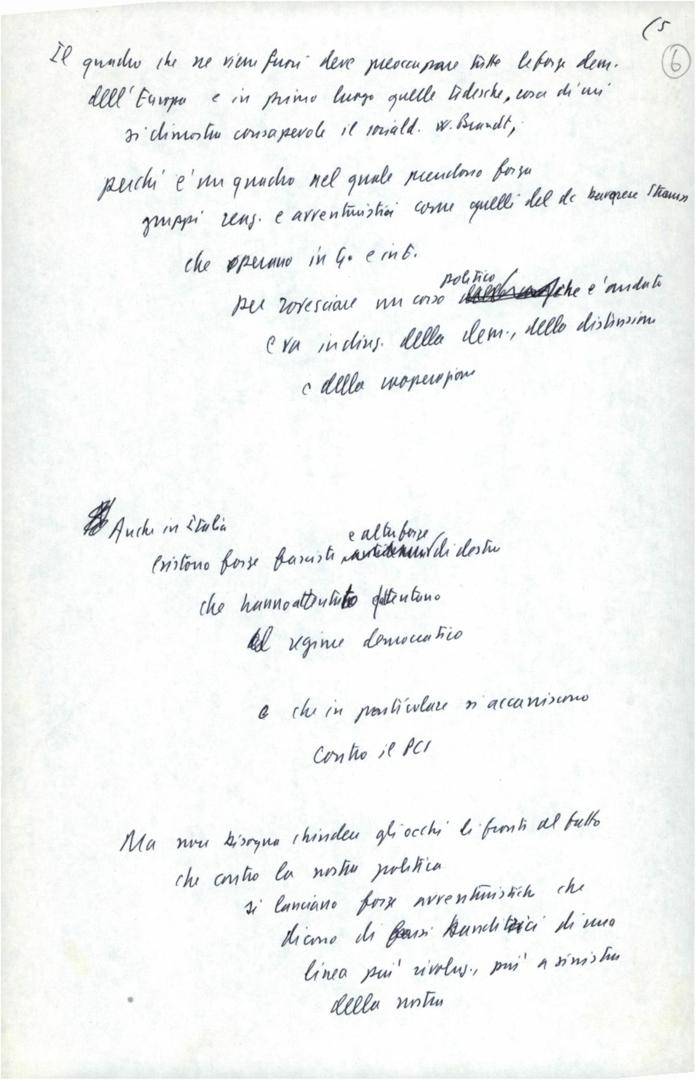 15
6
Il quadro che ne viene fuori deve preoccupare tutte le forze dem.
dell'Europa e in primo luogo quelle tedesche, cosa di cui
si dimostra consapevole il sociald. W. Brandt,
perché è un quadro nel quale prendono forza
gruppi reaz. e avventuristici come quelli del dc bavarese Strauss
che operano in G. e in E.
politico
per rovesciare un corso che è andato
e va in direz. della dem., della distensione
e della cooperazione
Anche in Italia
e altre forze
esistono forze fasciste di destra
che hanno attentato e attentano
al regime democratico
e che in particolare si accaniscono
contro il PCI
Ma non bisogna chiudere gli occhi di fronte al fatto
che contro la nostra politica
si lanciano forze avventuristiche che
dicono di farsi banditrici di una
linea più rivoluz., più a sinistra
della nostra